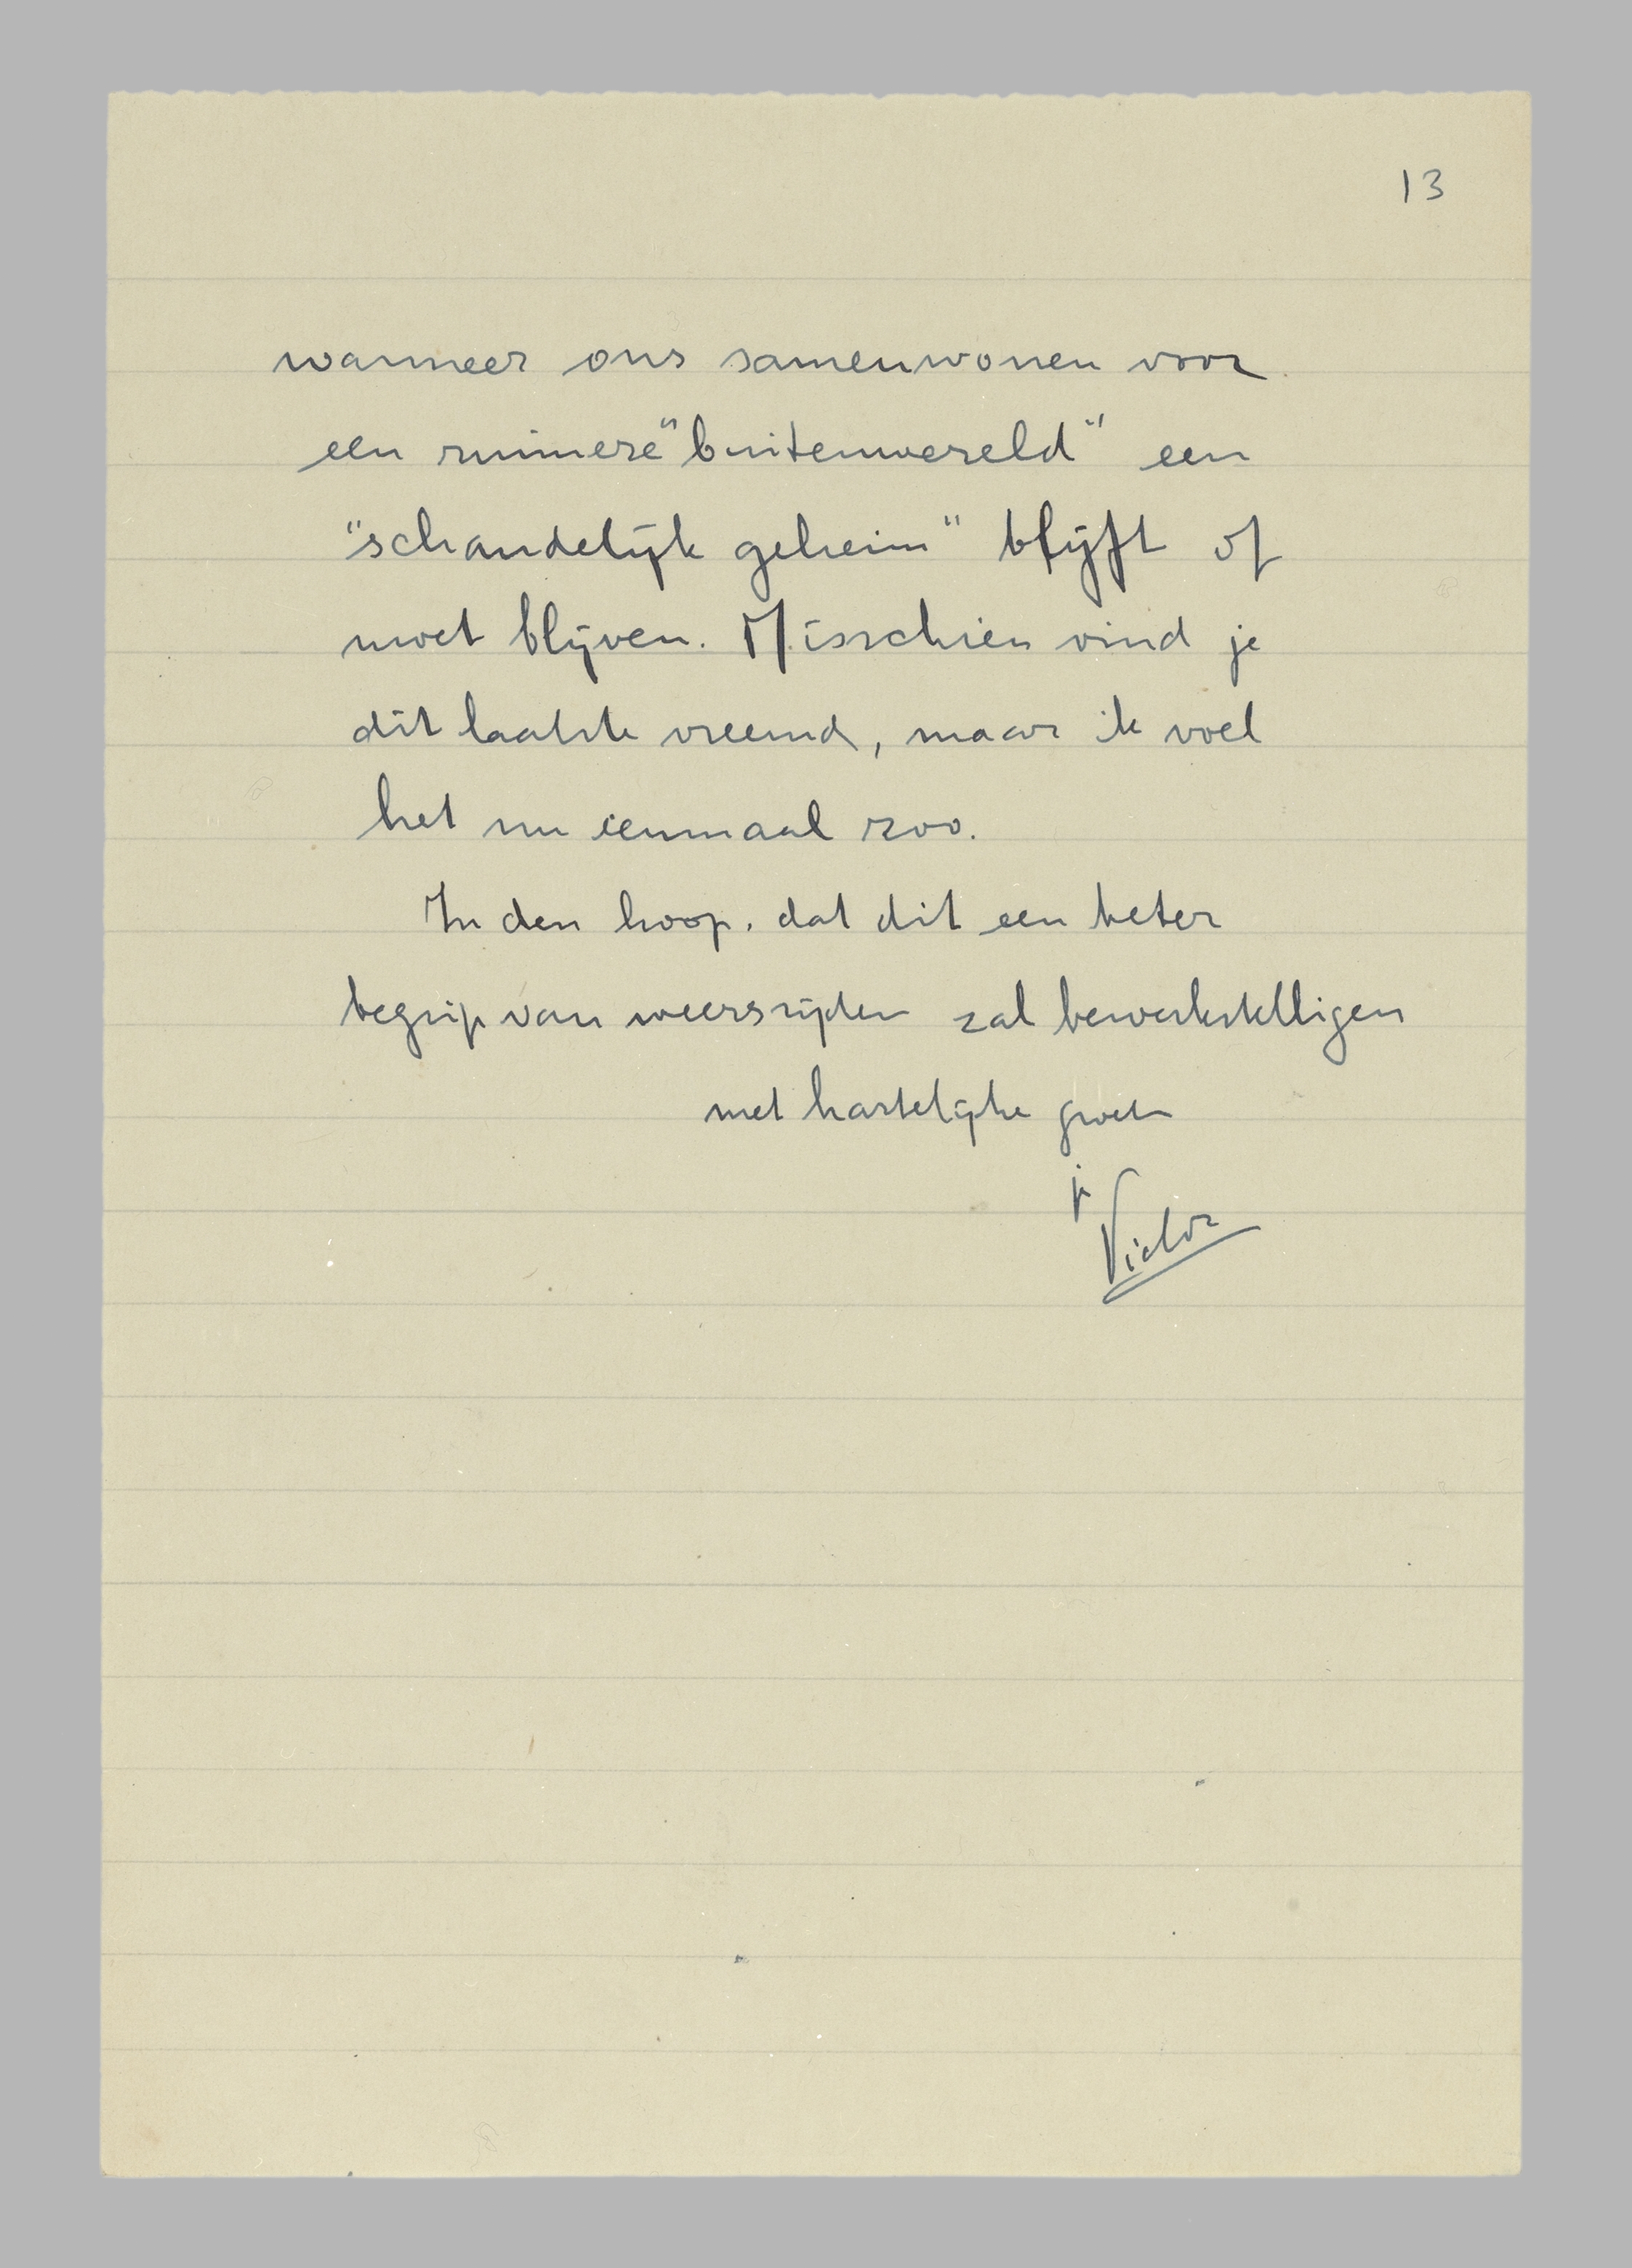 13
wanneer ons samenwonen voor
een ruimere "buitenwereld" een
"schandelijk geheim" blijft of
moet blijven. Misschien vind je
dit laatste vreemd, maar ik voel
het nu eenmaal zoo.
In den hoop, dat dit een beter
begrip van weerszijden zal bewerkstelligen
met hartelijke groeten
je
Victor